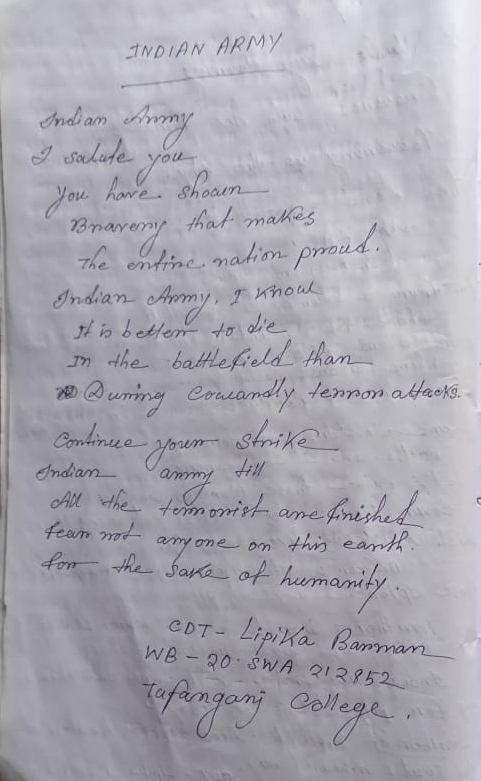 INDIAN ARMY
Indian Army
I salute you
You have shown
Bravery that makes
The entire nation proud.
Indian Army, I know
It is better to die
In the battlefield than
During Cowardly terror attacks.
Continue your strike
Indian army till
All the terrorist are finished
fear not anyone on this earth.
for the sake of humanity.
CDT- Lipika Barman
WB - 20. SWA 212852
Tafanganj College.